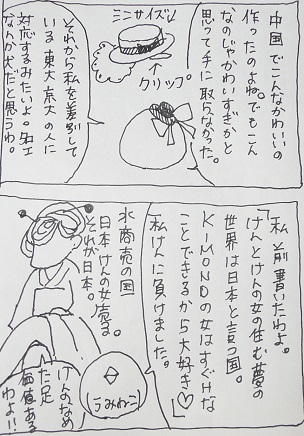 中国でこんなかわいいの
作ったのよね。でもこん
なのじゃかわいすぎかと
思って手に取らなかった。
ミニサイズ↓
クリップ。
それから私を差別して
いる東大京大の人に
対応するみたいよ。名工
なんか犬だと思うわ。
「私前書いたわよ。
けんとけんの女の住む夢の
世界は日本と言う国。
K-IMONOの女はすぐHな
ことできるから大好き♡」
私けんに負けました。
水商売の国
日本けんの女売る。
それが日本。
うみねこ
けんのなめ
た足
価値ある
わよ!!